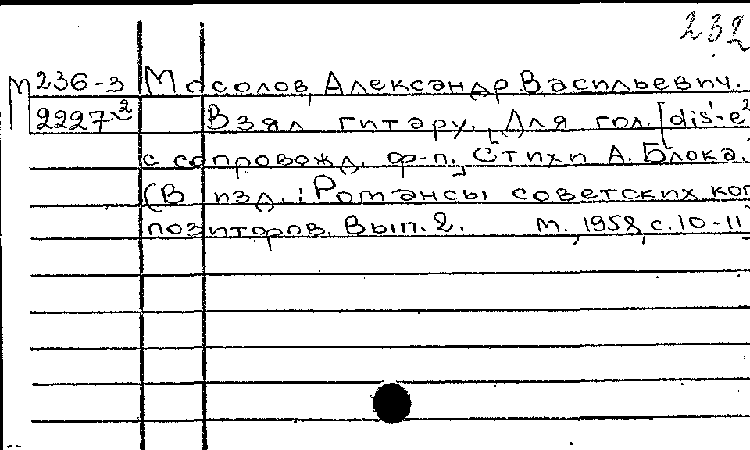 232
М 236-3 Мосолов, Александр Васильевич.
2227² Взял гитару. Для гол. [dis¹-e²
с сопровожд. ф-п. Стихи А. Блока.
(В изд.: Романсы советских ком
позиторов. Вып. 2. М., 1958, с. 10-11